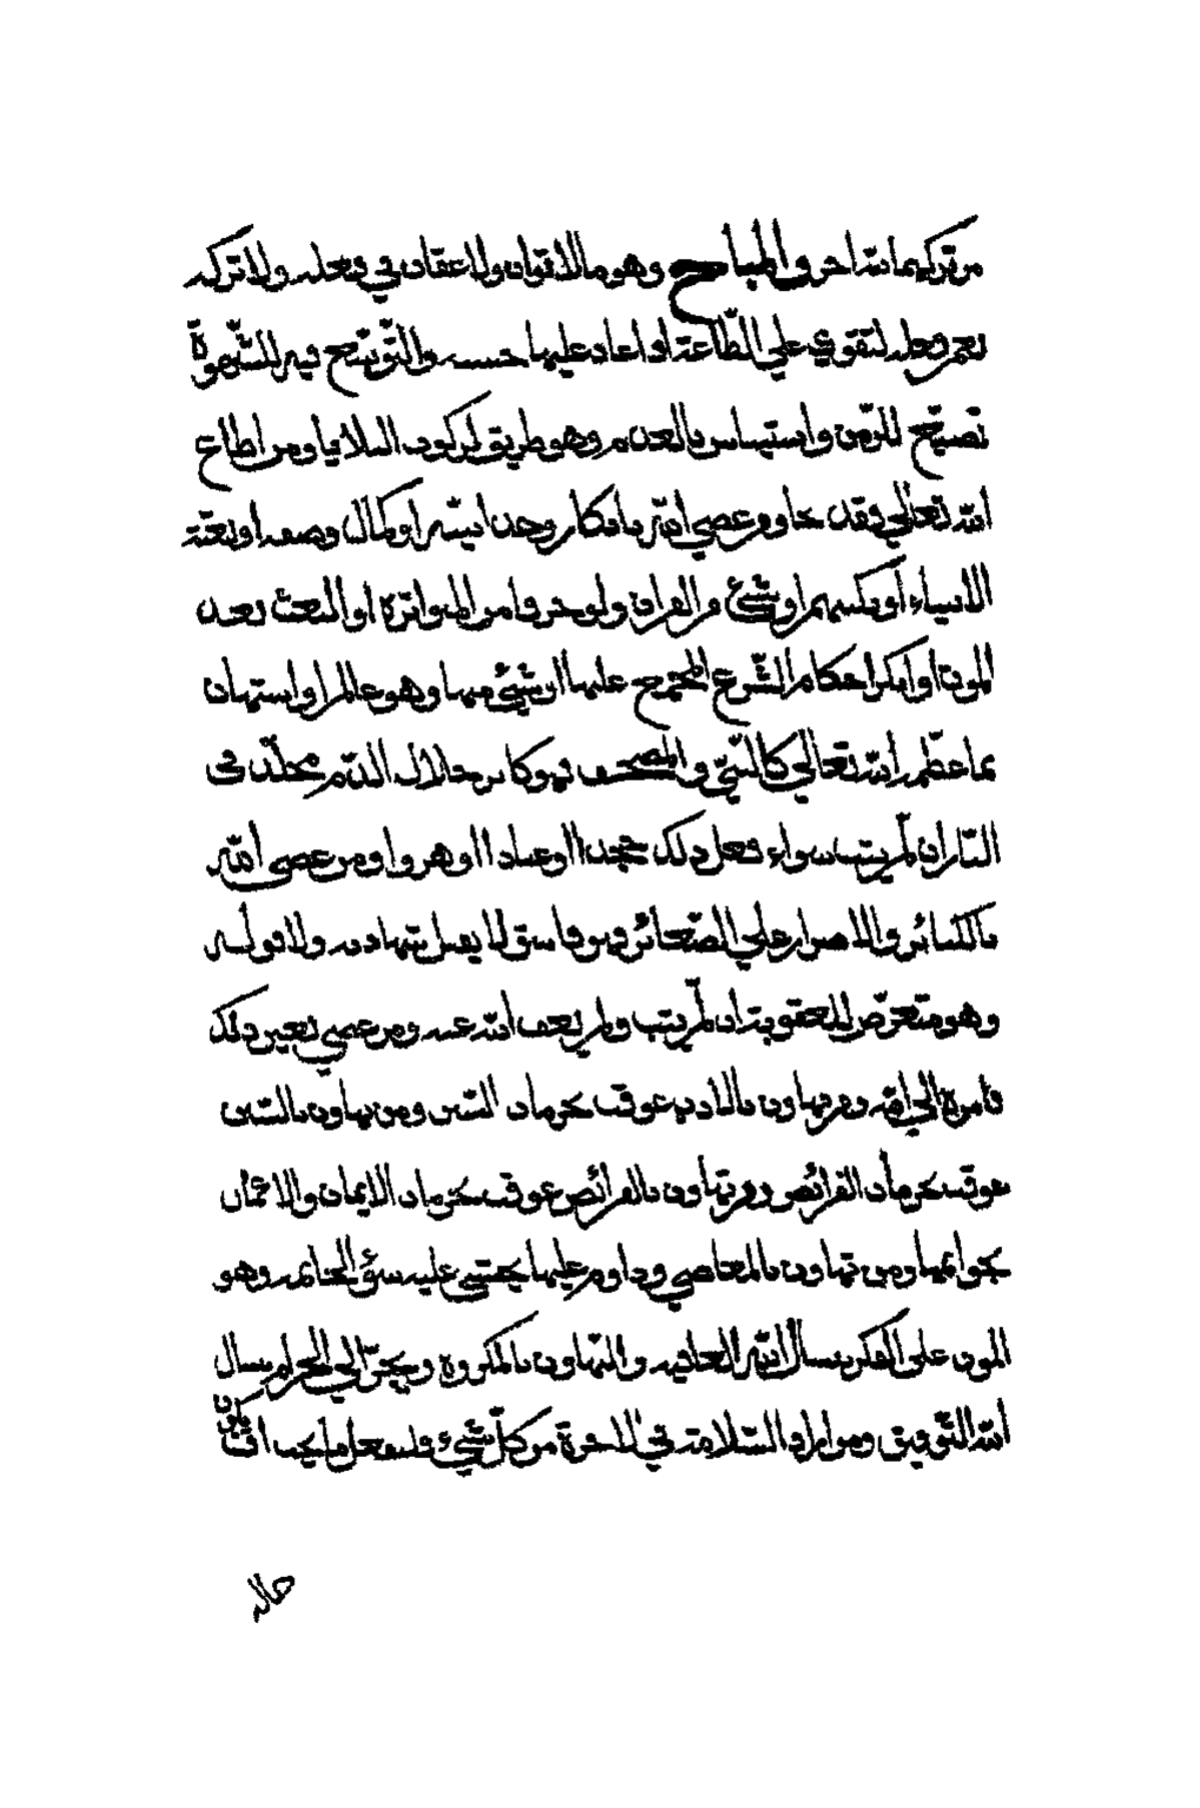 من تركها لله اجر والمباح وهو ما لا ثواب ولا عقاب في فعله ولا تركه
نعم فعله لتقوي علي الطاعة او اعاد عليها حسنه والتوسّع فيه للشهوة
تضييع للزمن واستيناس بالعدم وهو طريق لركوب البلايا ومن اطاع
الله تعالي فقد نجا ومن عصي الله بانكار وحدانيته او كمال وصفه او بعثة
الانبياء او بكتبهم او شيئ من القران ولو حرفا من المتواترة او البعث بعد
الموت او انكر احكام الشرع المجتمع عليها او شيئ منها وهو عالم او استهان
بما عظّمه الله تعالي كالنبيّ والمصحف فهو كافر حلال الدّم مخلّد في
النّار ان لم يتب سواء فعل ذلك جحدا او عنادا او هزوا ومن عصى الله
بالكبائر والاصرار علي الصّغائر فهو فاسق لا يقبل شهادته ولا قوله
وهو متعرّض للعقوبة ان لم يتب ولم يعف الله عنه ومن عصي بغير ذلك
فامره الي الله ومن تهاون بالادب عوقب بحرمان السنن ومن تهاون بالسنن
عوقب بحرمان الفرائض ومن تهاون بالفرائض عوقب بحرمان الايمان والاعمال
بخواتيمها ومن تهاون بالمعاصي وداوم عليها يخشي عليه سوء الخاتمه وهو
الموت على الكفر نسال الله العافيه والتهاون بالمكروه يجرّ الي الحرام نسال
الله التوفيق ومن اراد السّلامة في الاخرة من كلّ شيئ فليفعل ما يجب ان يكون
حاله